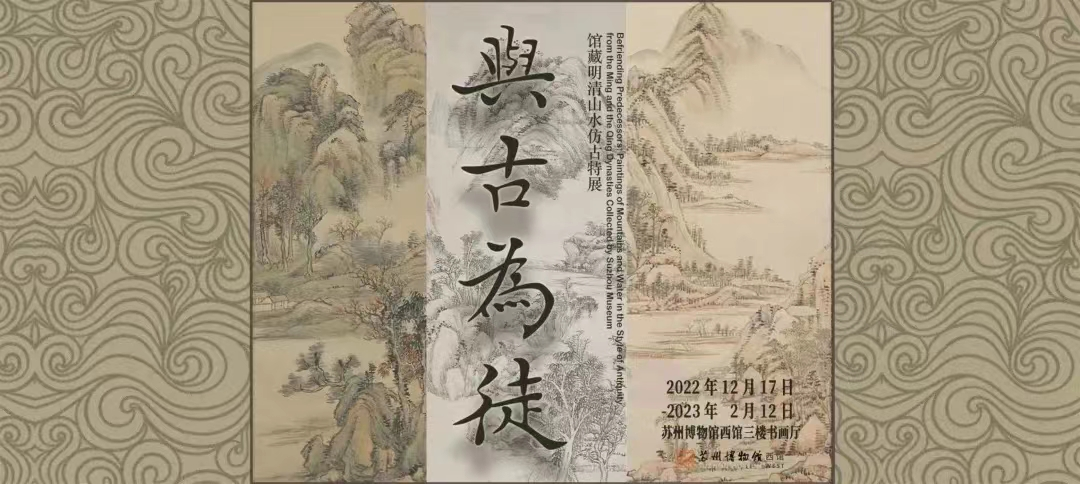 與古為徒
馆藏明清山水仿古特展
Befriending Predecessors: Paintings of Mountains and Water in the Style of Antiquity
from the Ming and the Qing Dynasties Collected by Suzhou Museum
2022 年 12 月 17 日
-2023 年 2 月 12 日
苏州博物馆西馆三楼书画厅
苏州博物馆 西馆
WEST